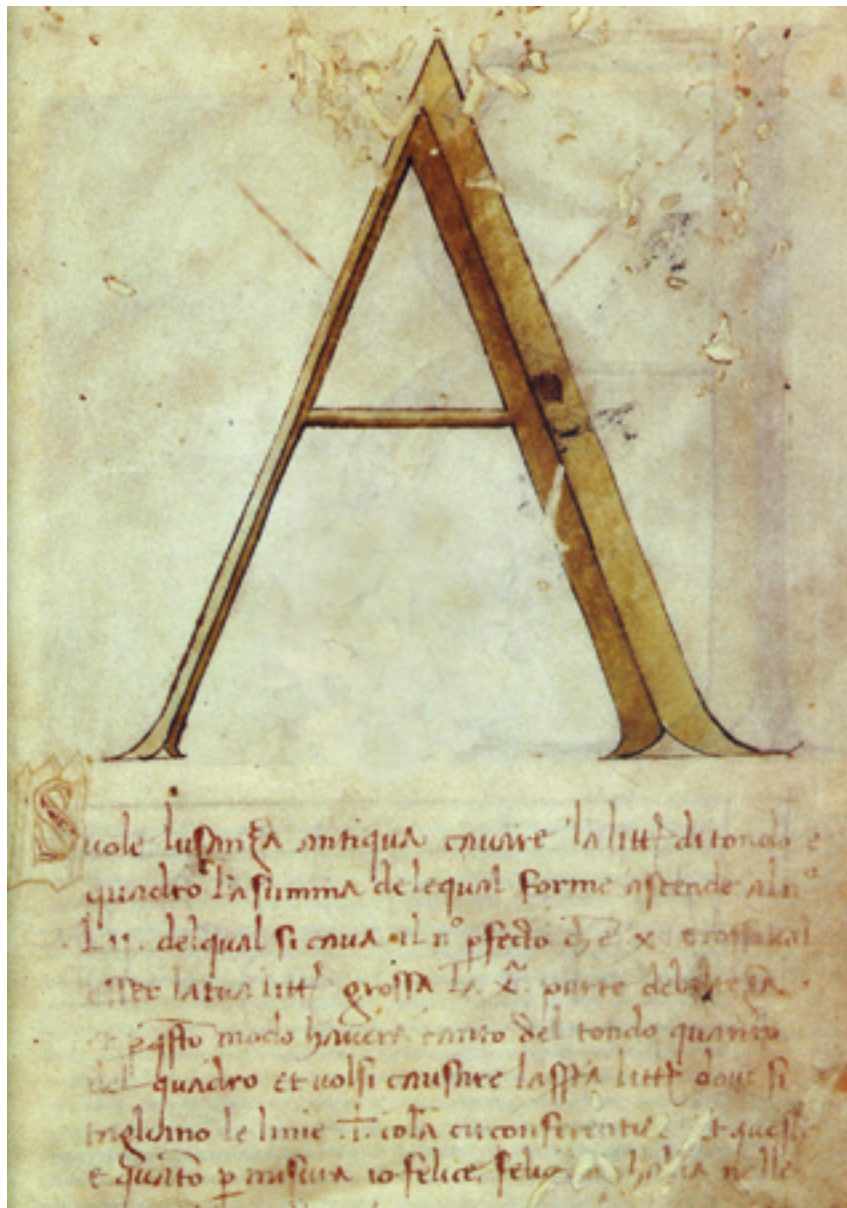 A
Suole lusanza antiqua cavare la litt di tondo e
quadro la summa dele qual forme ascende al nº
LII. del qual si cava il nº pfecto che x
esser la tua litt grossa la X pte
et p qsto modo havera tanto del tondo quanto
del quadro et volsi causare la litt dove si
tagliano le linie .+. cola circonferentie Et questo
e quāto p misura io felice felic nelle